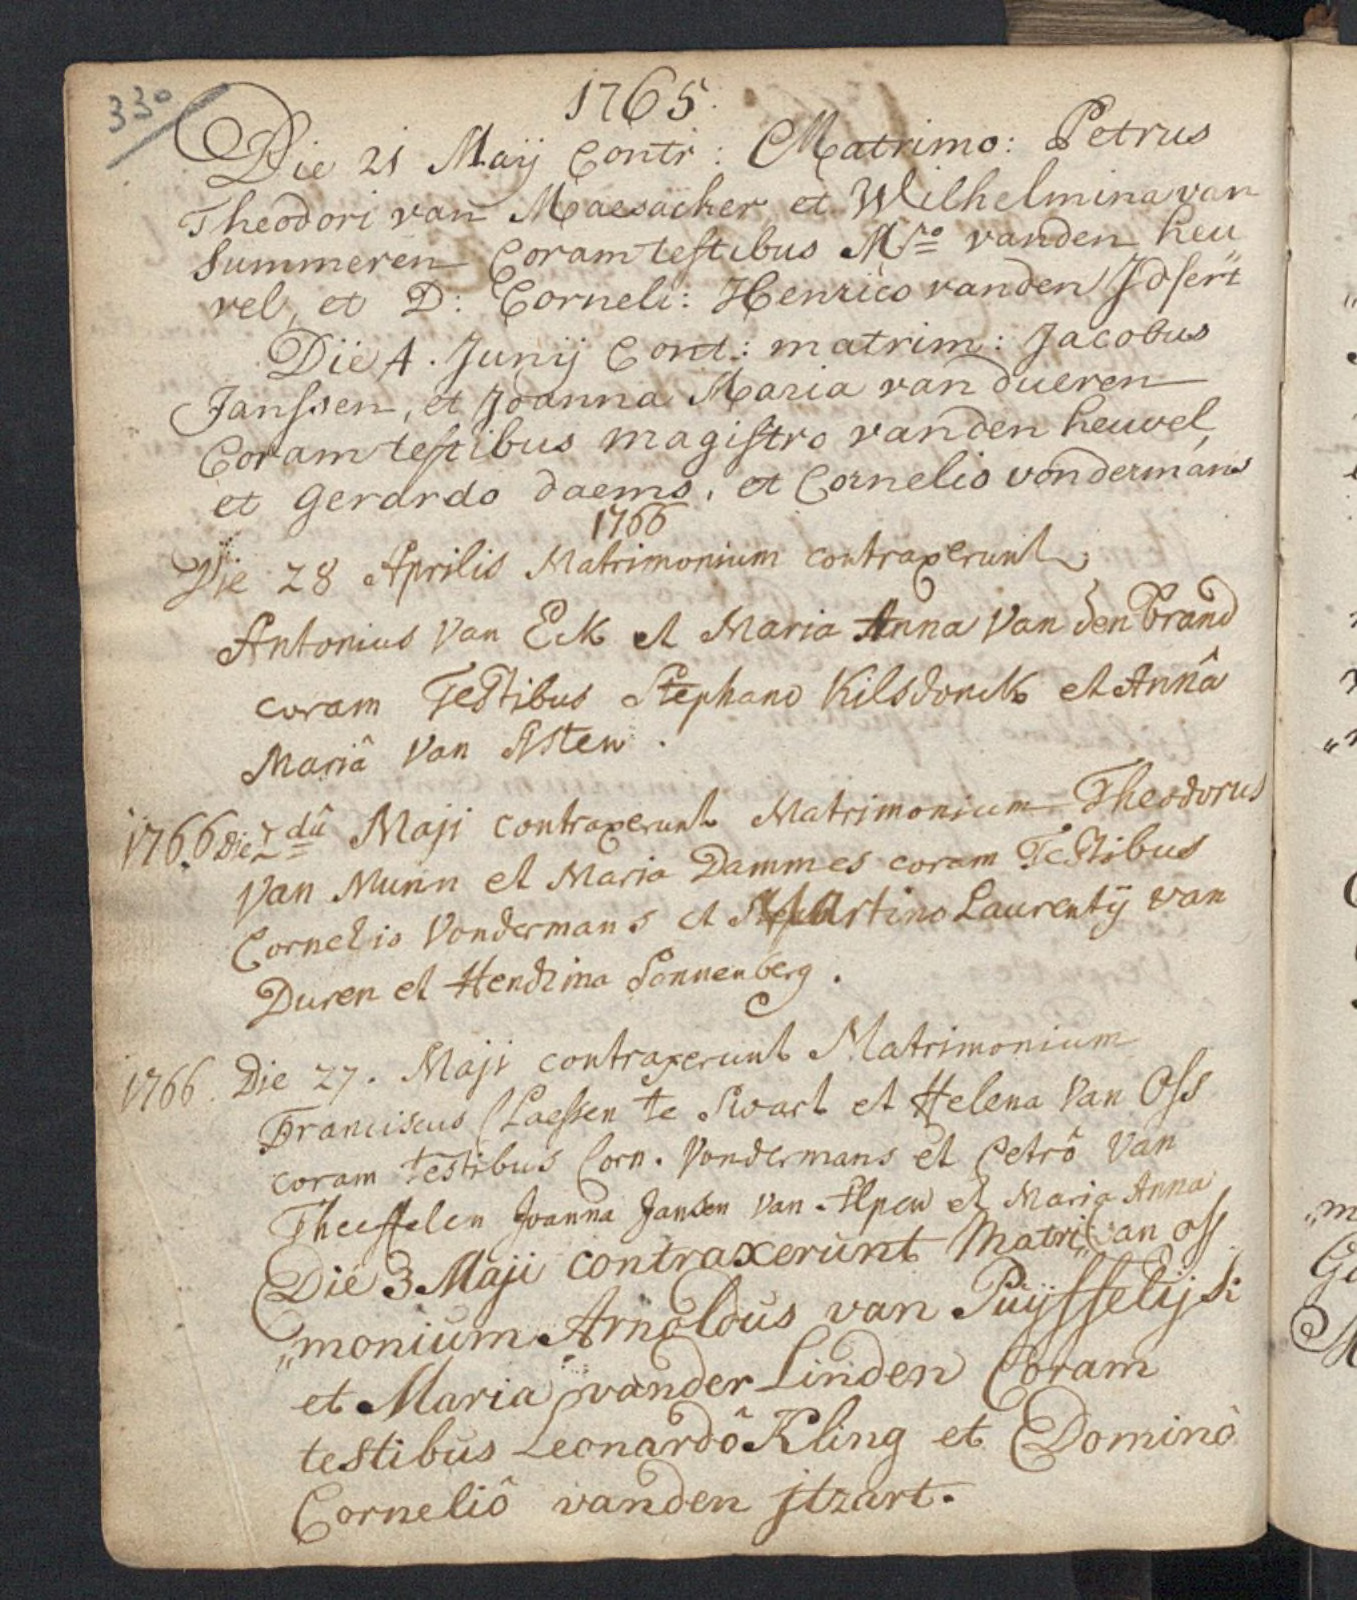 330
1765
Die 21 Maij Contr: Matrimo: Petrus
Theodori van Maesacker et Wilhelmina van
Summeren Coram testibus Mro vanden heu
vel, et D: Corneli: Henrico vanden Idsert
Die 4. Junij Cont: matrim: Jacobus
Janssen, et Joanna Maria van dueren
Coram testibus magistro vanden heuvel,
et Gerardo daems, et Cornelio vondermans
1766
Die 28 Aprilis Matrimonium contraxerunt
Antonius Van Eck et Maria Anna Van den Brand
coram Testibus Stephano Kilsdonck et Annâ
Mariâ Van Asten.
1766 Die 2dâ Maji contraxerunt Matrimonium Theodorus
Van Munn et Maria Dammes coram Testibus
Cornelio Vondermans et Martino Laurentij van
Duren et Hendrina Sonnenberg.
1766. Die 27. Maji contraxerunt Matrimonium
Franciscus Claessen te Swart et Helena Van Oss
coram testibus Corn. Vondermans et Petrô Van
Theeffelen Joanna Jansen Van Alpen et Maria Anna
van oss.
Die 3 Maji contraxerunt Matri„
„monium Arnoldus van Puijsselijk
et Maria vander Linden Coram
testibus Leonardô Kling et Dominô
Corneliô vanden jtzart.